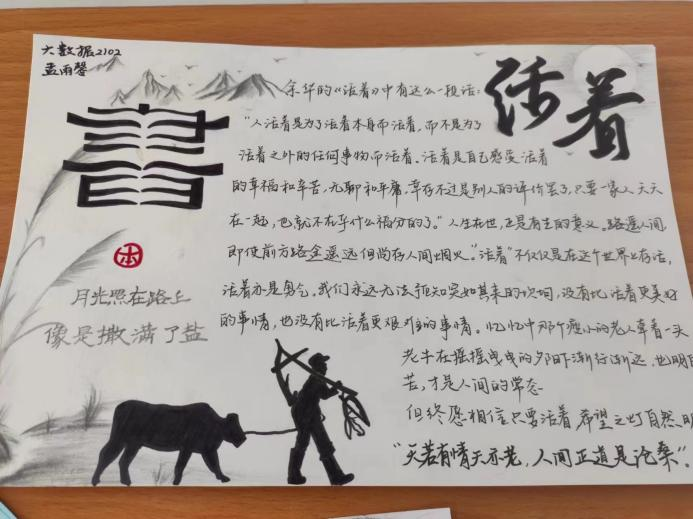 大数据2102
孟雨馨
書
本
月光照在路上
像是撒满了盐
活着
余华的《活着》中有这么一段话：
“人活着是为了活着本身而活着，而不是为了
活着之外的任何事物而活着。活着是自己感受活着
的幸福和辛苦，无聊和平庸，幸存不过是别人的评价罢了，只要一家人天天
在一起，也就不在乎什么福分的了。”人生在世，正是有生的意义。路遥人间，
即使前方路途遥远但尚存人间烟火。“活着”不仅仅是在这个世界上存活，
活着亦是勇气。我们永远无法预知突如其来的坎坷，没有比活着更美好
的事情，也没有比活着更艰难的事情。忆忆中那个瘦小的老人牵着一头
老牛在摇摇曳曳的夕阳下渐行渐远，也明白
苦，才是人间的常态
但终愿相信只要活着 希望之灯自然明
“天若有情天亦老，人间正道是沧桑”。